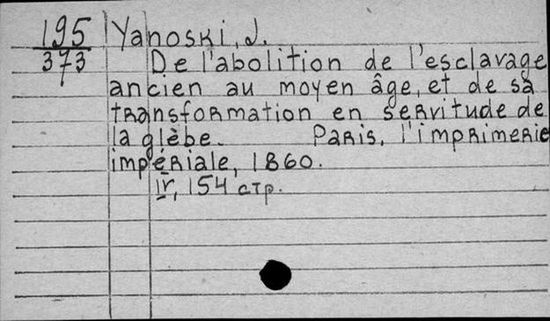 195
373
Yanoski, J.
De l'abolition de l'esclavage
ancien au moyen âge, et de sa
transformation en servitude de
la glèbe. Paris, l'imprimerie
impériale, 1860.
IV, 154 стр.